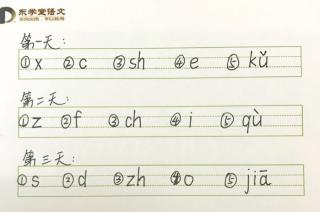 东学堂语文
第一天：
①x ②c ③sh ④e ⑤kǔ
第二天：
①z ②f ③ch ④i ⑤qù
第三天：
①s ②d ③zh ④o ⑤jiā